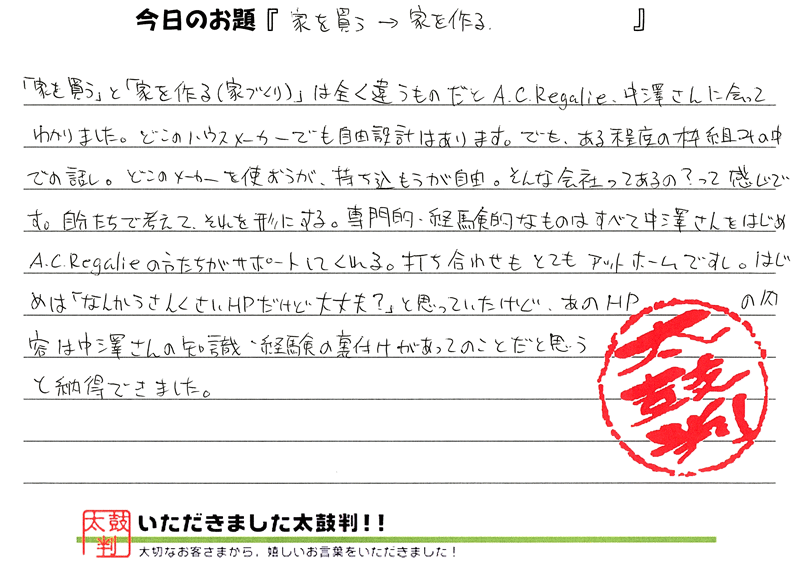 今日のお題『家を買う → 家を作る. 』
「家を買う」と「家を作る(家づくり)」は全く違うものだとA.C.Regalie、中澤さんに会って
わかりました。どこのハウスメーカーでも自由設計はあります。でも、ある程度の枠組みの中
での話し。どこのメーカーを使おうが、持ち込もうが自由。そんな会社ってあるの?って感じで
す。自分たちで考えて、それを形にする。専門的・経験的なものはすべて中澤さんをはじめ
A.C.Regalieの方たちがサポートしてくれる。打ち合わせもとてもアットホームですし。はじ
めは「なんかうさんくさいHPだけど大丈夫?」と思っていたけど、あのHP の内
容は中澤さんの知識・経験の裏付けがあってのことだと思う
と納得できました。
太鼓判
太鼓判
いただきました太鼓判!!
大切なお客さまから、嬉しいお言葉をいただきました!